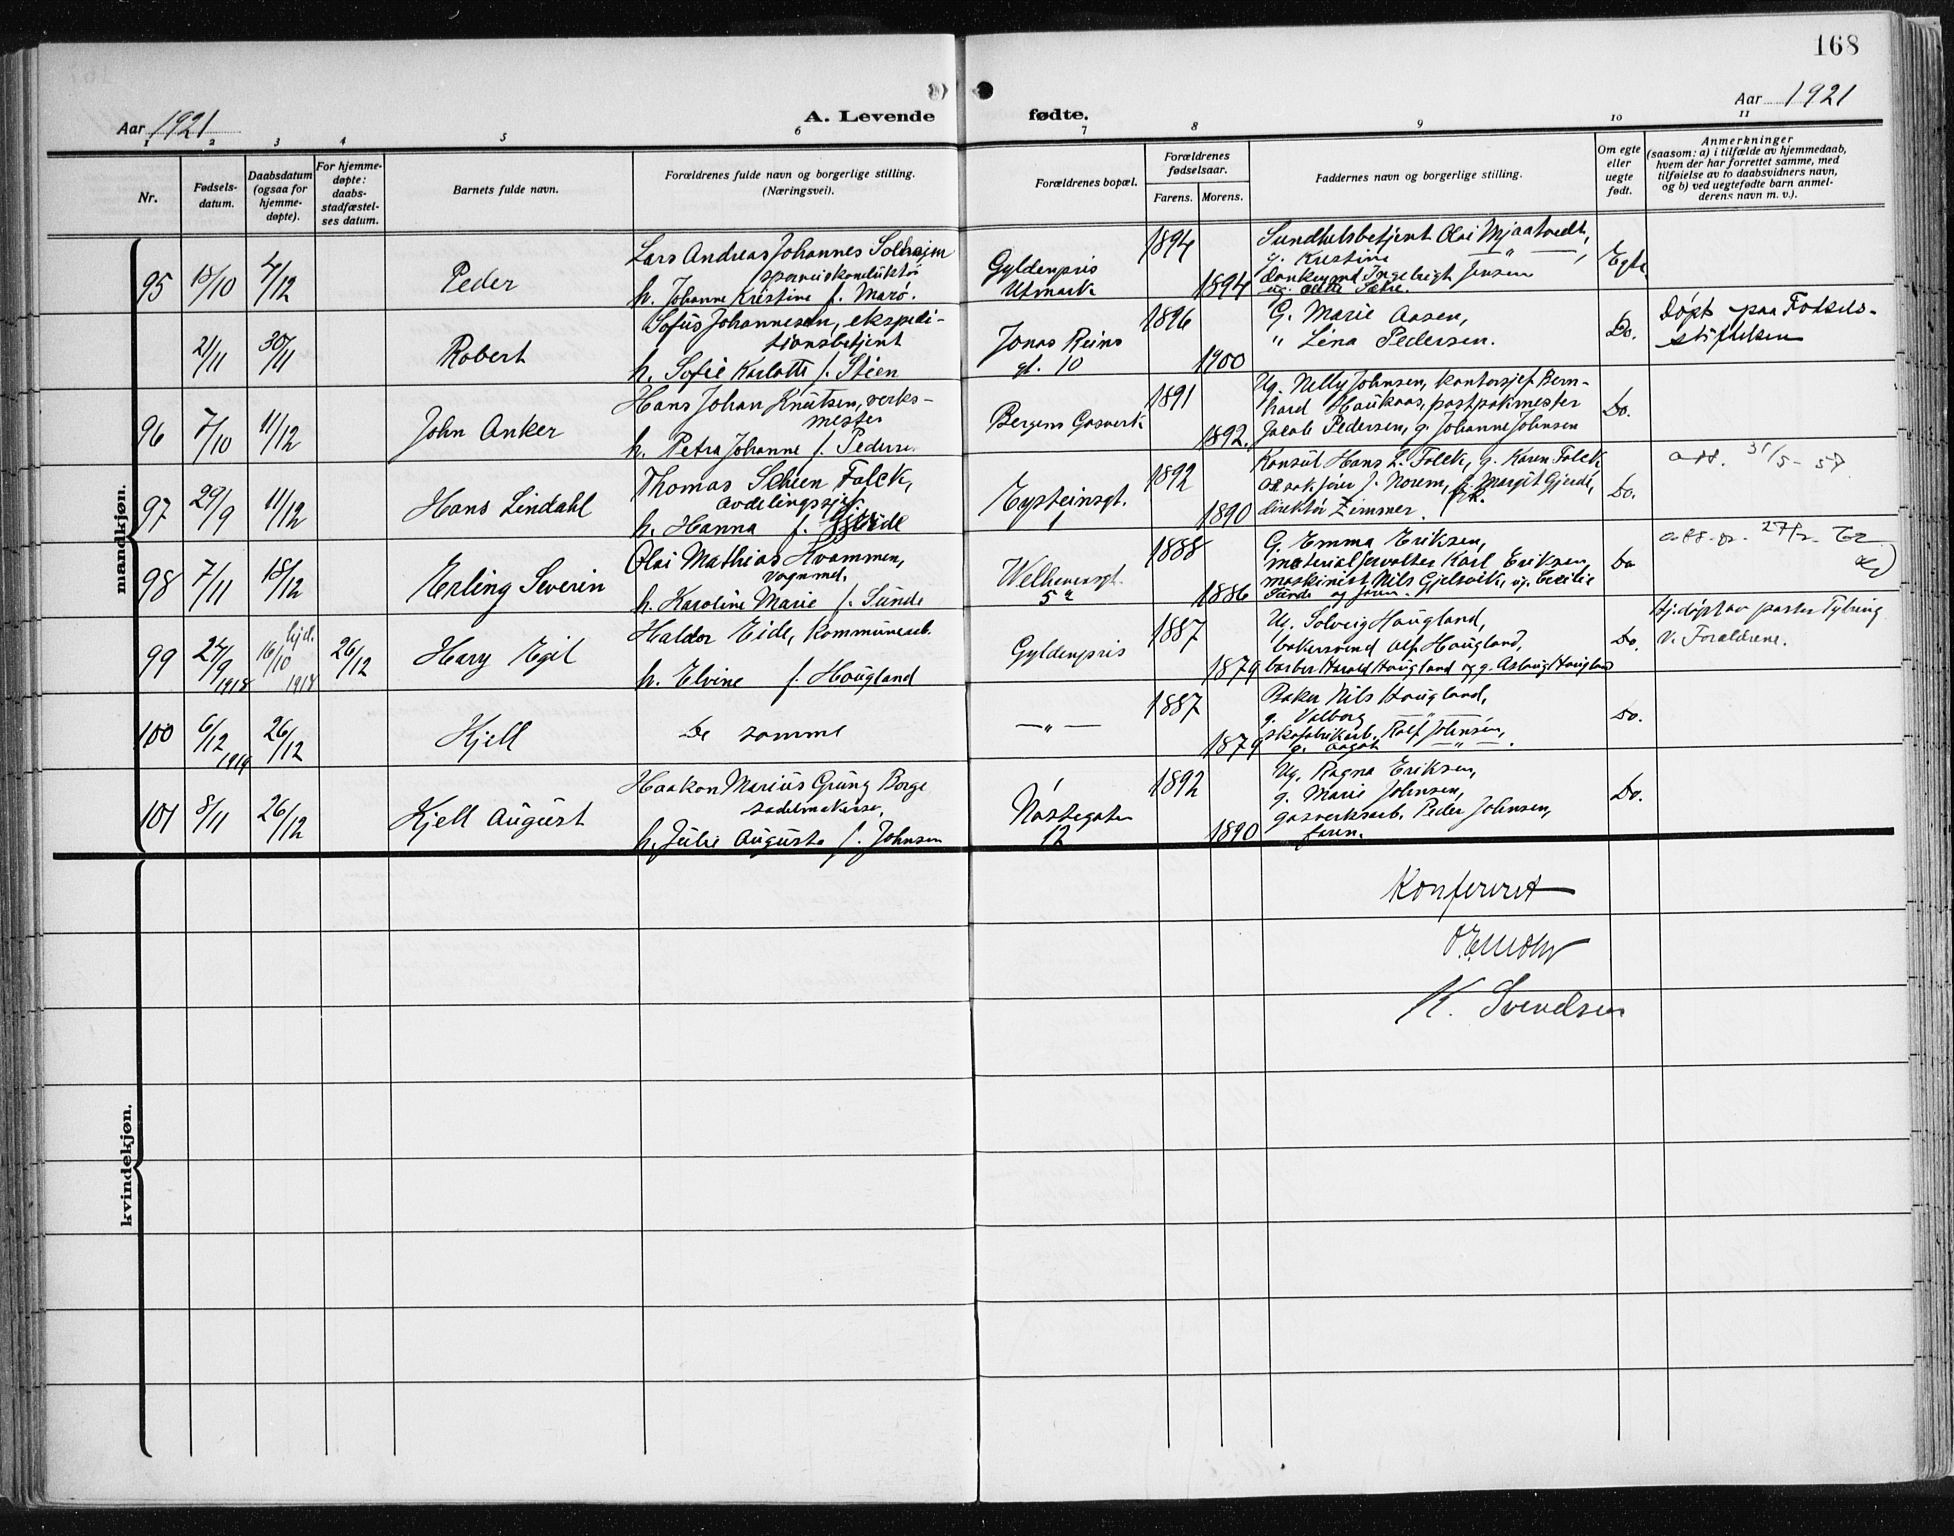 168
Aar 1921
A. Levende fødte.
Aar 1921
1 2 3 4 5 6 7 8 9 10 11
Nr.
Fødsels-
datum.
Daabsdatum
(ogsaa for
hjemme-
døpte).
For hjemme-
døpte:
daabs-
stadfæstel-
ses datum.
Barnets fulde navn.
Forældrenes fulde navn og borgerlige stilling.
(Næringsvei).
Forældrenes bopæl.
Forældrenes
fødselsaar.
Farens. Morens.
Faddernes navn og borgerlige stilling.
Om egte
eller
uegte
født.
Anmerkninger
(saasom: a) i tilfælde av hjemmedaab,
hvem der har forrettet samme, med
tilføielse av to daabsvidners navn,
og b) ved uegtefødte barn anmel-
derens navn m. v.).
mandkjøn.
95 13/10 4/12 Peder
Lars Andreas Johannes Solheim
sporveiskonduktør
h. Johanne Kristine f. Marø.
Gyldenpris
Utmark
1894 1894
Sundhetsbetjent Olai Mjaatvedt,
g. Kristine — " —,
Ingebrigt Jensen
Egte
21/11 30/11 Robert
Sofus Johannesen, ekspedi-
tionsbetjent
h. Sofie Karlotte f. Steen
Jonas Reins
gt. 10
1896 1900
G. Marie Aasen,
" Lina Pedersen.
Do.
Døpt paa Fødsels-
stiftelsen
96 7/10 11/12 John Anker
Hans Johan Knutsen, verks-
mester
h. Petra Johanne f. Pederse.
Bergens Gasverk
1891 1892.
Ug. Nelly Johnsen, kontorsjef Bern-
hard Haukaas, postpakmester
Jacob Pedersen, g. Johanne Johnsen
Do.
97 29/9 11/12 Hans Lindahl
Thomas Scheen Falck,
avdelingssjef
h. Hanna f. Gjerde
Eysteinsgt.
1
1892 1890
Konsul Hans L. Falck, g. Karen Falck
J. Norem, Margit Gjerde,
direktør Zimmer.
Do.
att. 31/5-57
98 7/11 18/12 Erling Severin
Olai Mathias Kvammen,
vognmd.
h. Karoline Marie f. Sunde
Welhavensgt.
5a
1888 1886
G. Emma Eriksen,
materialforvalter Karl Eriksen,
maskinist Nils Gjelsvik, ug. Cecilie
Sunde og foren.
Do
99 24/9 1918 hjd. 16/10 1918 26/12 Hary Egil
Haldor Eide, kommunearb.
h. Elvine f. Hougland
Gyldenpris
1887 1879
Ug. Solveig Hougland,
bakersvend Alf Hougland,
barber Harald Hougland og g. Aslaug Hougland
Do.
Hj.døpt av pastor Tybring
v. Forældrene.
100 6/12 1919 26/12 Kjell
De samme
— " —
1887 1879
Baker Nils Hougland,
g. Valborg — " —
skofabrikarb. Rolf Johnsen,
g. Aagot — " —.
Do.
101 8/11 26/12 Kjell August
Haakon Marius Grung Borge
sadelmakersv.
h. Julie Augusta f. Johnsen
Nøstegaten
12
1892 1890
Ug. Ragna Eriksen,
g. Marie Johnsen,
gasverksarb. Peder Johnsen,
foren.
Do.
kvindekjøn.
Konferert
K. Svendsen